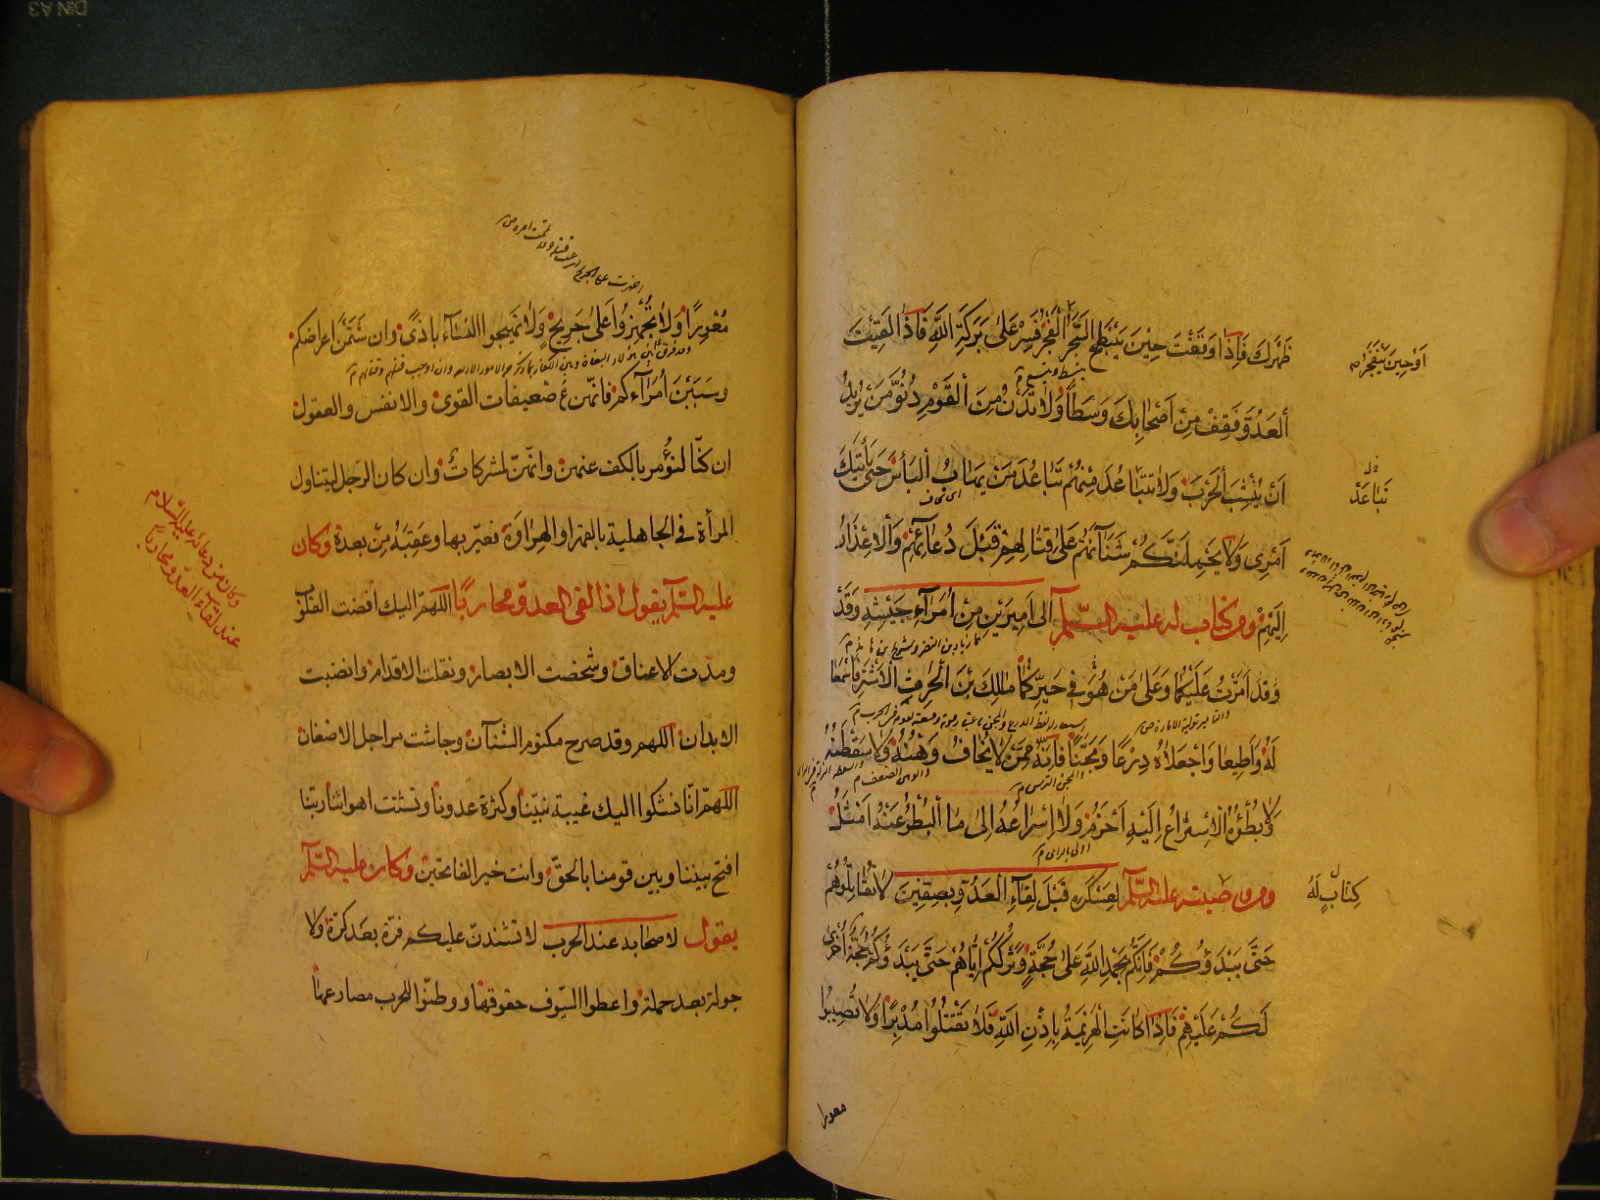 ظَهْرَكَ فَإِذَا وَقَفْتَ حِيْنَ يَنْبَطِحُ السَّحَرُ الْفَجْرُ فَسِرْ عَلَى بَرَكَةِ اللّٰهِ فَاذَا لَقِيْتَ
اَوْ حِيْنَ يَنْفَجِرُ
اَلْعَدُوَّ فَقِفْ مِنْ اَصْحَابِكَ وَسَطًا وَلَا تَدْنُ مِنَ الْقَوْمِ دُنُوَّ مَنْ يُرِيْدُ
اَنْ يُنْشِبَ الْحَرْبَ وَلَا تَتَبَاعَدْ مِنْهُمْ تَبَاعُدَ مَنْ يَهَابُ الْبَأْسَ حَتّٰى يَأْتِيَكَ
تَبَاعَدْ
اَمْرِى وَلَا يَحْمِلَنَّكُمْ شَنَآنُهُمْ عَلٰى قِتَالِهِمْ قَبْلَ دُعَائِهِمْ وَالْاِعْذَارِ
اِلَيْهِمْ ومن كتاب له عليه السّلم الى اَمِيرَيْنِ مِنْ اُمَرَآءِ جَيْشِهِ وَقَدْ
وَقَدْ اَمَّرْتُ عَلَيْكُمَا وَعَلٰى مَنْ هُوَ فِى حَيِّزِكُمَا مَالِكَ بْنَ الْحٰرِثِ الْاَشْتَرَ فَاسْمَعَا
لَهُ وَاَطِيعَا وَاجْعَلَاهُ دِرْعًا وَمِجَنًّا فَاِنَّهُ مِمَّنْ لَا يُخَافُ وَهْنُهُ وَلَا سَقْطَتُهُ
والمجن الترس
والوهن الضعف
وَلَا بُطْؤُهُ الْاِسْرَاعُ اِلَيْهِ اَحْزَمُ وَلَا اِسْرَاعُهُ اِلٰى مَا الْبُطْؤُ عَنْهُ اَمْثَلُ
ومن وصيته عليه السّلم لِعَسْكَرِهِ قَبْلَ لِقَآءِ الْعَدُوِّ بِصِفِّيْنَ لَا تُقَاتِلُوهُمْ
كِتَابٍ لَهُ
حَتّٰى يَبْدَؤُكُمْ فَاِنَّكُمْ بِحَمْدِ اللّٰهِ عَلٰى حُجَّةٍ وَتَرْكُكُمْ اِيَّاهُمْ حَتّٰى يَبْدَؤُكُمْ حُجَّةٌ اُخْرٰى
لَكُمْ عَلَيْهِمْ فَاِذَا كَانَتِ الْهَزِيْمَةُ بِاِذْنِ اللّٰهِ فَلَا تَقْتُلُوا مُدْبِرًا وَلَا تُصِيبُوا
معورا
مُعْوِرًا وَلَا تُجْهِزُوا عَلٰى جَرِيْحٍ وَلَا تَهِيجوا النسَآء باذًى وان شَتَمْنَ اعراضكم
وسَبَبْنَ اُمَرَآءَكم فانّهنّ ضعيفات القوى والانفس والعقول
ان كنّا لنؤمر بالكف عنهن وانّهنّ لمشركاتٌ وان كان الرّجل ليتناول
المرأة فى الجاهلية بالفهر او الهِرَاوَة فيعيّر بها وعَقِبَهُ مِنْ بعده وكان
عليه السّلم يقول اذا لقى العدو محاربًا اللهمّ اليك افضت القلوب
وكان من دعائه عليه السّلام
عند لقآء العدو محاربًا
ومدّت الاعناق وشخصت الابصار ونقلت الاقدام وانضيت
الابدان اللهم وقد صرح مكنوم الشنآن وجاشت مراجل الاضغان
اللهمّ انّا نشكوا اليك غيبة نبيّنا وكثرة عدونا وتشتت اهوائنا ربّنا
افتح بيننا وبين قومنا بالحقّ وانت خير الفاتحين وكان عليه السّلم
يقول لاصحابه عند الحرب لا تشتدنّ عليكم فرّة بعد كرّة ولا
جولة بعد حملة واعطوا السّيوف حقوقها ووطنّوا للحرب مصارعها